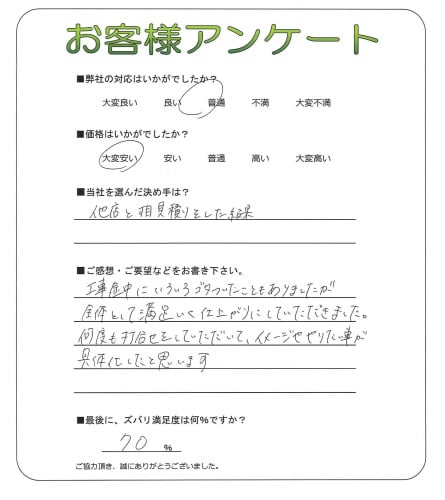 お客様アンケート
■弊社の対応はいかがでしたか？
大変良い 良い 普通 不満 大変不満
■価格はいかがでしたか？
大変安い 安い 普通 高い 大変高い
■当社を選んだ決め手は？
他店と相見積りをした結果
■ご感想・ご要望などをお書き下さい。
工事途中にいろいろゴタついたこともありましたが
全体として満足いく仕上がりにしていただきました。
何度も打合せをしていただいて、イメージややりたい事が
具体化したと思います
■最後に、ズバリ満足度は何％ですか？
70 ％
ご協力頂き、誠にありがとうございました。